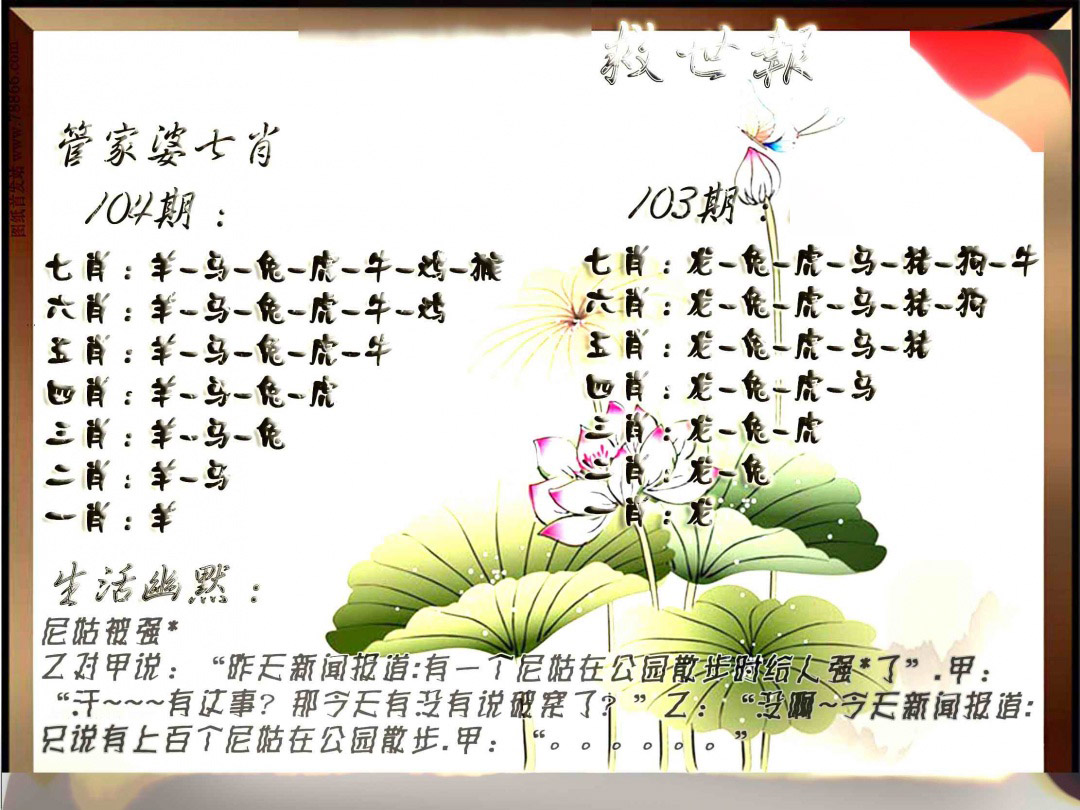 救世報
管家婆七肖
104期：
七肖：羊-马-兔-虎-牛-鸡-猴
六肖：羊-马-兔-虎-牛-鸡
五肖：羊-马-兔-虎-牛
四肖：羊-马-兔-虎
三肖：羊-马-兔
二肖：羊-马
一肖：羊
103期：
七肖：龙-兔-虎-马-猪-狗-牛
六肖：龙-兔-虎-马-猪-狗
五肖：龙-兔-虎-马-猪
四肖：龙-兔-虎-马
三肖：龙-兔-虎
二肖：龙-兔
一肖：龙
生活幽默：
尼姑被强*
乙对甲说：“昨天新闻报道:有一个尼姑在公园散步时给人强*了”.甲：
“汗~~~有这事？那今天有没有说破案了？”乙：“没啊~今天新闻报道:
只说有上百个尼姑在公园散步.甲：“。。。。。。”
图纸首发站 www.78866.com